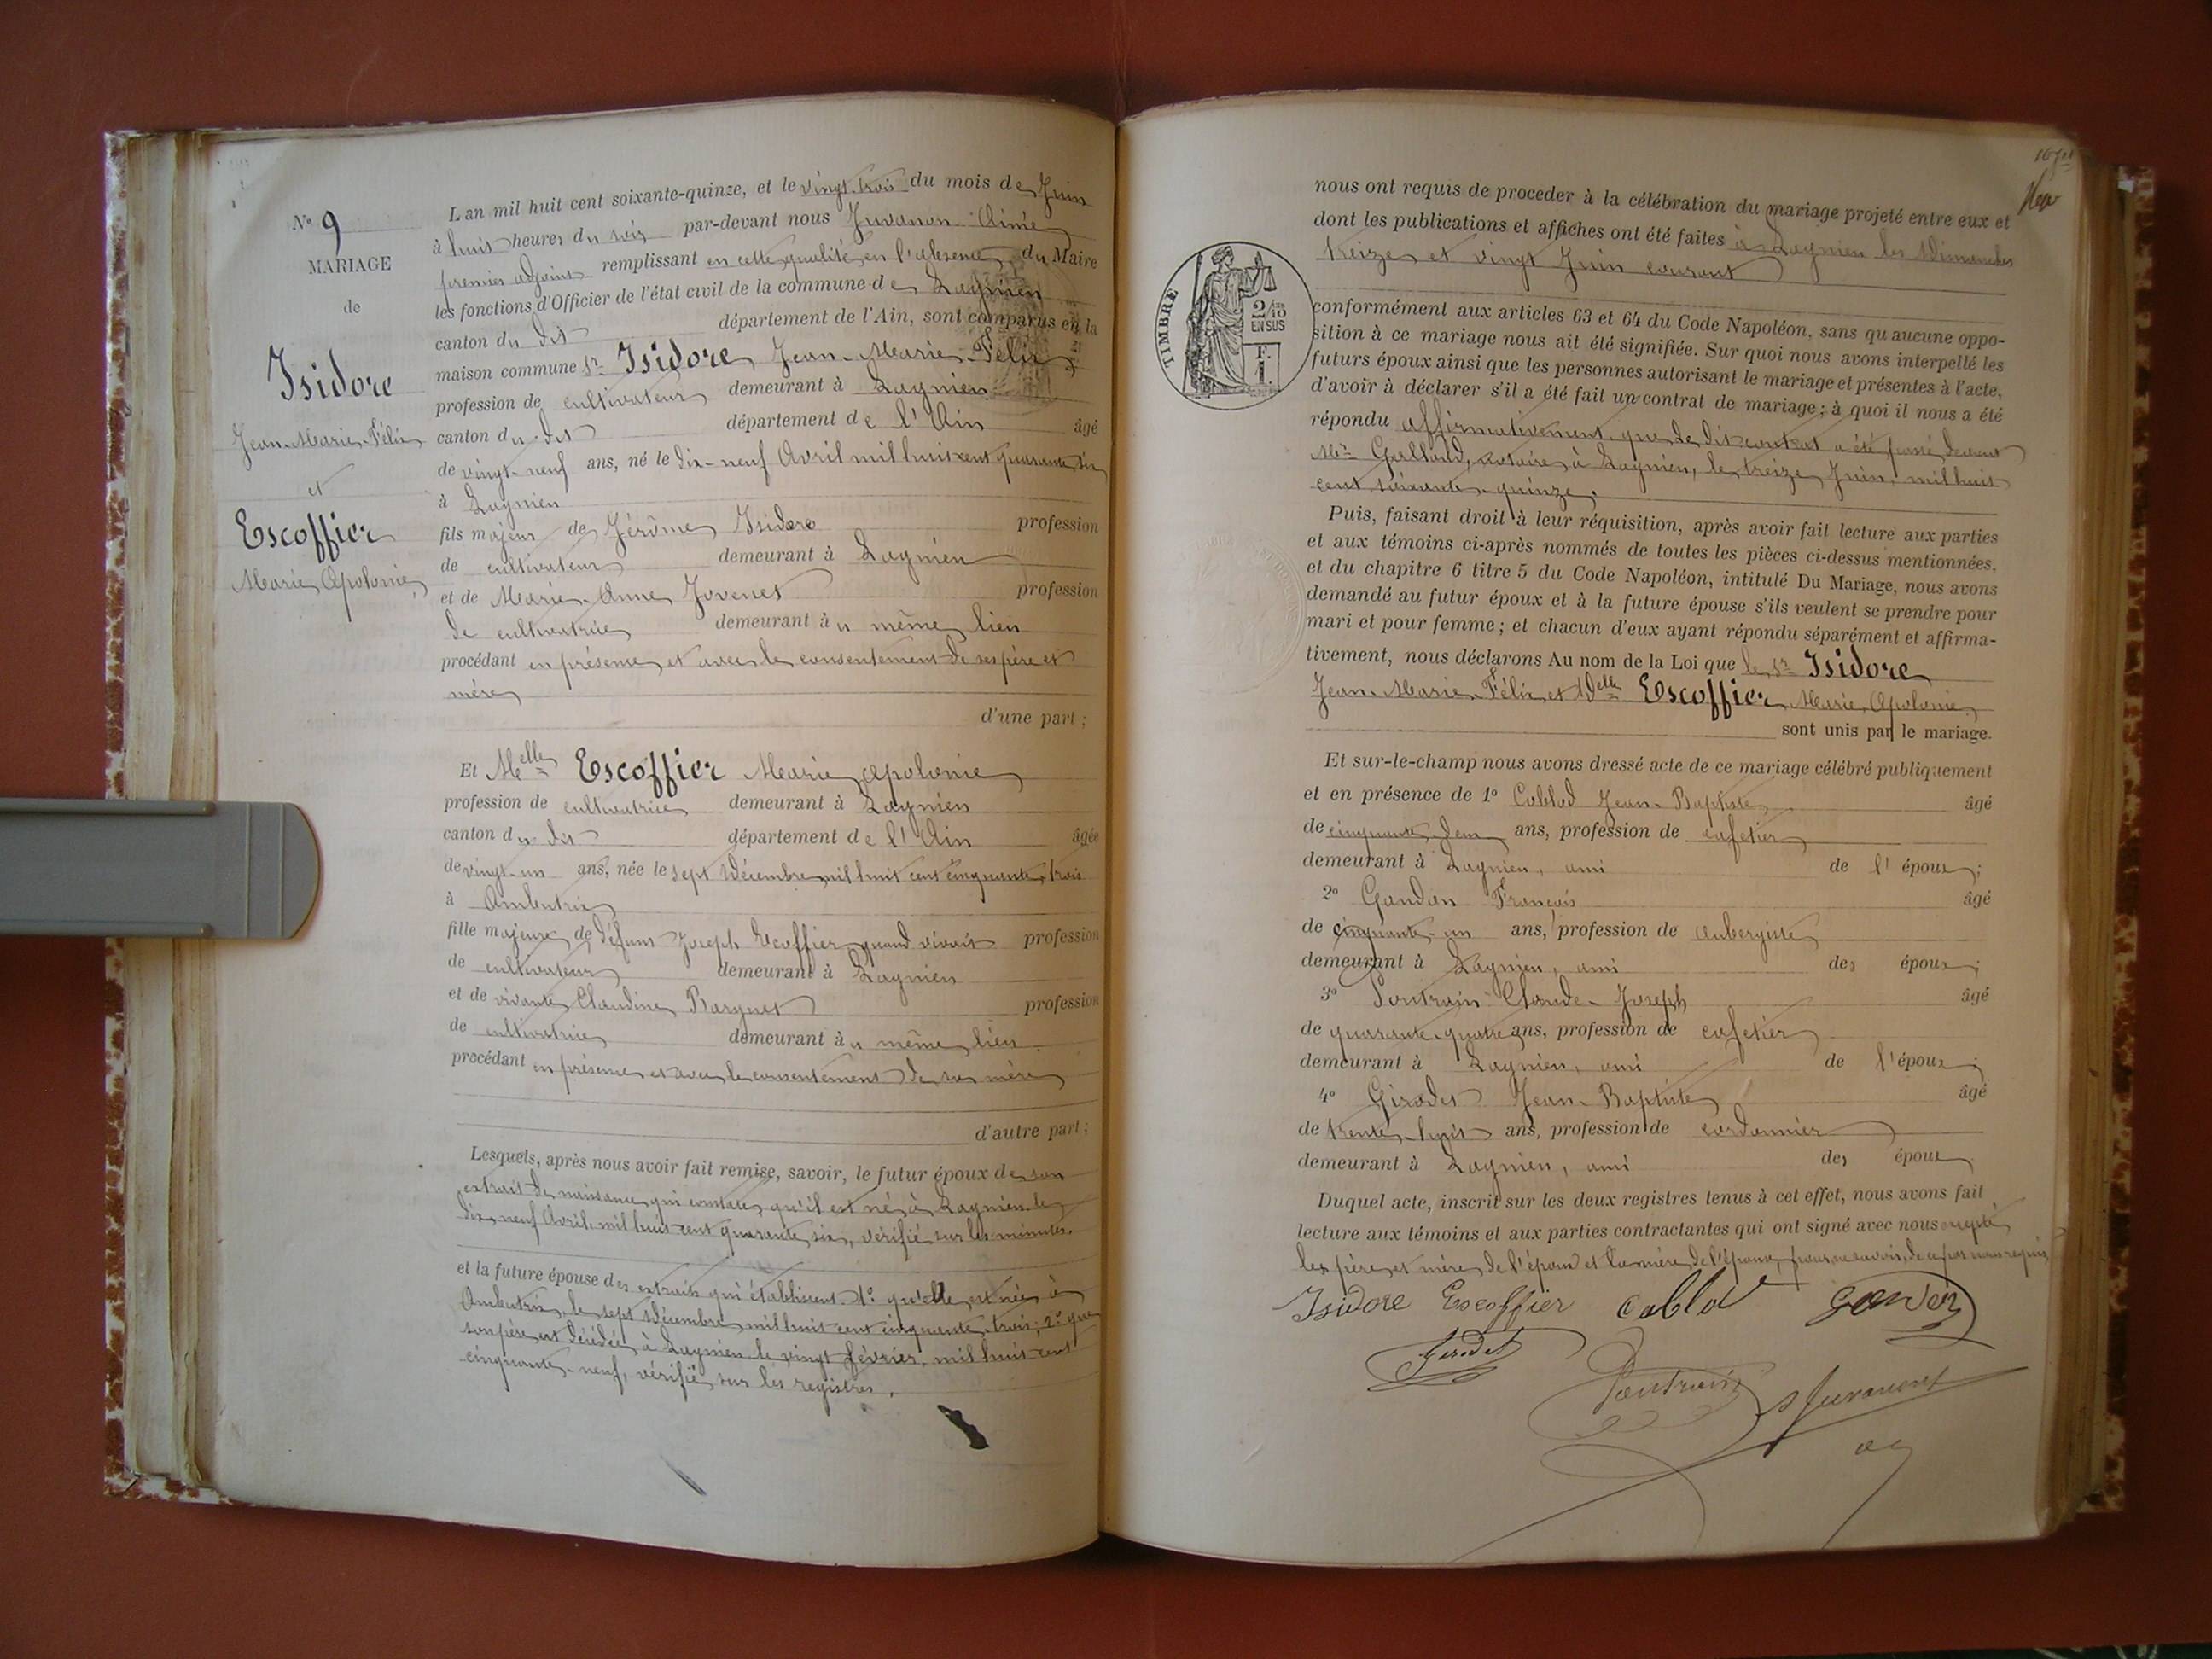 N° 9
MARIAGE
de
Isidore
Jean-Marie-Félix
et
Escoffier
Marie Apolonie
L'an mil huit cent soixante-quinze, et le vingt-trois du mois de Juin
à huit heures du soir par-devant nous Juvanon Aimé
premier adjoint remplissant en cette qualité, en l'absence du Maire
les fonctions d'Officier de l'état civil de la commune de Lagnieu
canton du dit département de l'Ain, sont comparus en la
maison commune Sr Isidore Jean-Marie-Félix
profession de cultivateur demeurant à Lagnieu
canton du dit département de l'Ain âgé
de vingt-neuf ans, né le dix-neuf Avril mil huit cent quarante six
à Lagnieu
fils majeur de Jérôme Isidore profession
de cultivateur demeurant à Lagnieu
et de Marie-Anne Jovenet profession
de cultivatrice demeurant au même lieu
procédant en présence et avec le consentement de ses père et
mère
d'une part ;
Et Melle Escoffier Marie Apolonie
profession de cultivatrice demeurant à Lagnieu
canton du dit département de l'Ain âgée
de vingt-un ans, née le sept Décembre mil huit cent cinquante-trois
à Ambutrix
fille majeure de défunt Joseph Escoffier, quand vivait profession
de cultivateur demeurant à Lagnieu
et de vivante Claudine Barquet profession
de cultivatrice demeurant au même lieu
procédant en présence et avec le consentement de sa mère
d'autre part ;
Lesquels, après nous avoir fait remise, savoir, le futur époux de son
extrait de naissance qui constate qu'il est né à Lagnieu le
dix-neuf Avril mil huit cent quarante six, vérifié sur les minutes.
et la future épouse des extraits qui établissent 1° qu'elle est née à
Ambutrix, le sept Décembre mil huit cent cinquante-trois; 2° que
son père est décédé à Lagnieu le vingt février mil huit cent
cinquante-neuf, vérifié sur les registres.
nous ont requis de proceder à la célébration du mariage projeté entre eux et
dont les publications et affiches ont été faites à Lagnieu les Dimanches
treize et vingt Juin courant
TIMBRE
2/10
EN SUS
F.
1.
conformément aux articles 63 et 64 du Code Napoléon, sans qu'aucune oppo-
sition à ce mariage nous ait été signifiée. Sur quoi nous avons interpellé les
futurs époux ainsi que les personnes autorisant le mariage et présentes à l'acte,
d'avoir à déclarer s'il a été fait un contrat de mariage ; à quoi il nous a été
répondu affirmativement que le dit contrat a été passé devant
Me Galland, notaire à Lagnieu, le treize Juin, mil huit
cent soixante-quinze.
Puis, faisant droit à leur réquisition, après avoir fait lecture aux parties
et aux témoins ci-après nommés de toutes les pièces ci-dessus mentionnées,
et du chapitre 6 titre 5 du Code Napoléon, intitulé Du Mariage, nous avons
demandé au futur époux et à la future épouse s'ils veulent se prendre pour
mari et pour femme ; et chacun d'eux ayant répondu séparément et affirma-
tivement, nous déclarons Au nom de la Loi que le Sr Isidore
Jean-Marie-Félix et Delle Escoffier Marie Apolonie
sont unis par le mariage.
Et sur-le-champ nous avons dressé acte de ce mariage célébré publiquement
et en présence de 1° Collod Jean-Baptiste âgé
de cinquante-deux ans, profession de cafetier
demeurant à Lagnieu, ami de l'époux ;
2° Gandon François âgé
de cinquante-un ans, profession de aubergiste
demeurant à Lagnieu, ami des époux ;
3° Poutrain Claude-Joseph âgé
de quarante-quatre ans, profession de cafetier
demeurant à Lagnieu, ami de l'époux ;
4° Girodet Jean-Baptiste âgé
de trente-huit ans, profession de cordonnier
demeurant à Lagnieu, ami des époux
Duquel acte, inscrit sur les deux registres tenus à cet effet, nous avons fait
lecture aux témoins et aux parties contractantes qui ont signé avec nous excepté
les père et mère de l'époux et la mère de l'épouse pour ne savoir, de ce par nous requis
Isidore Escoffier Collod Gandon
Girodet
Poutrain Juvanon